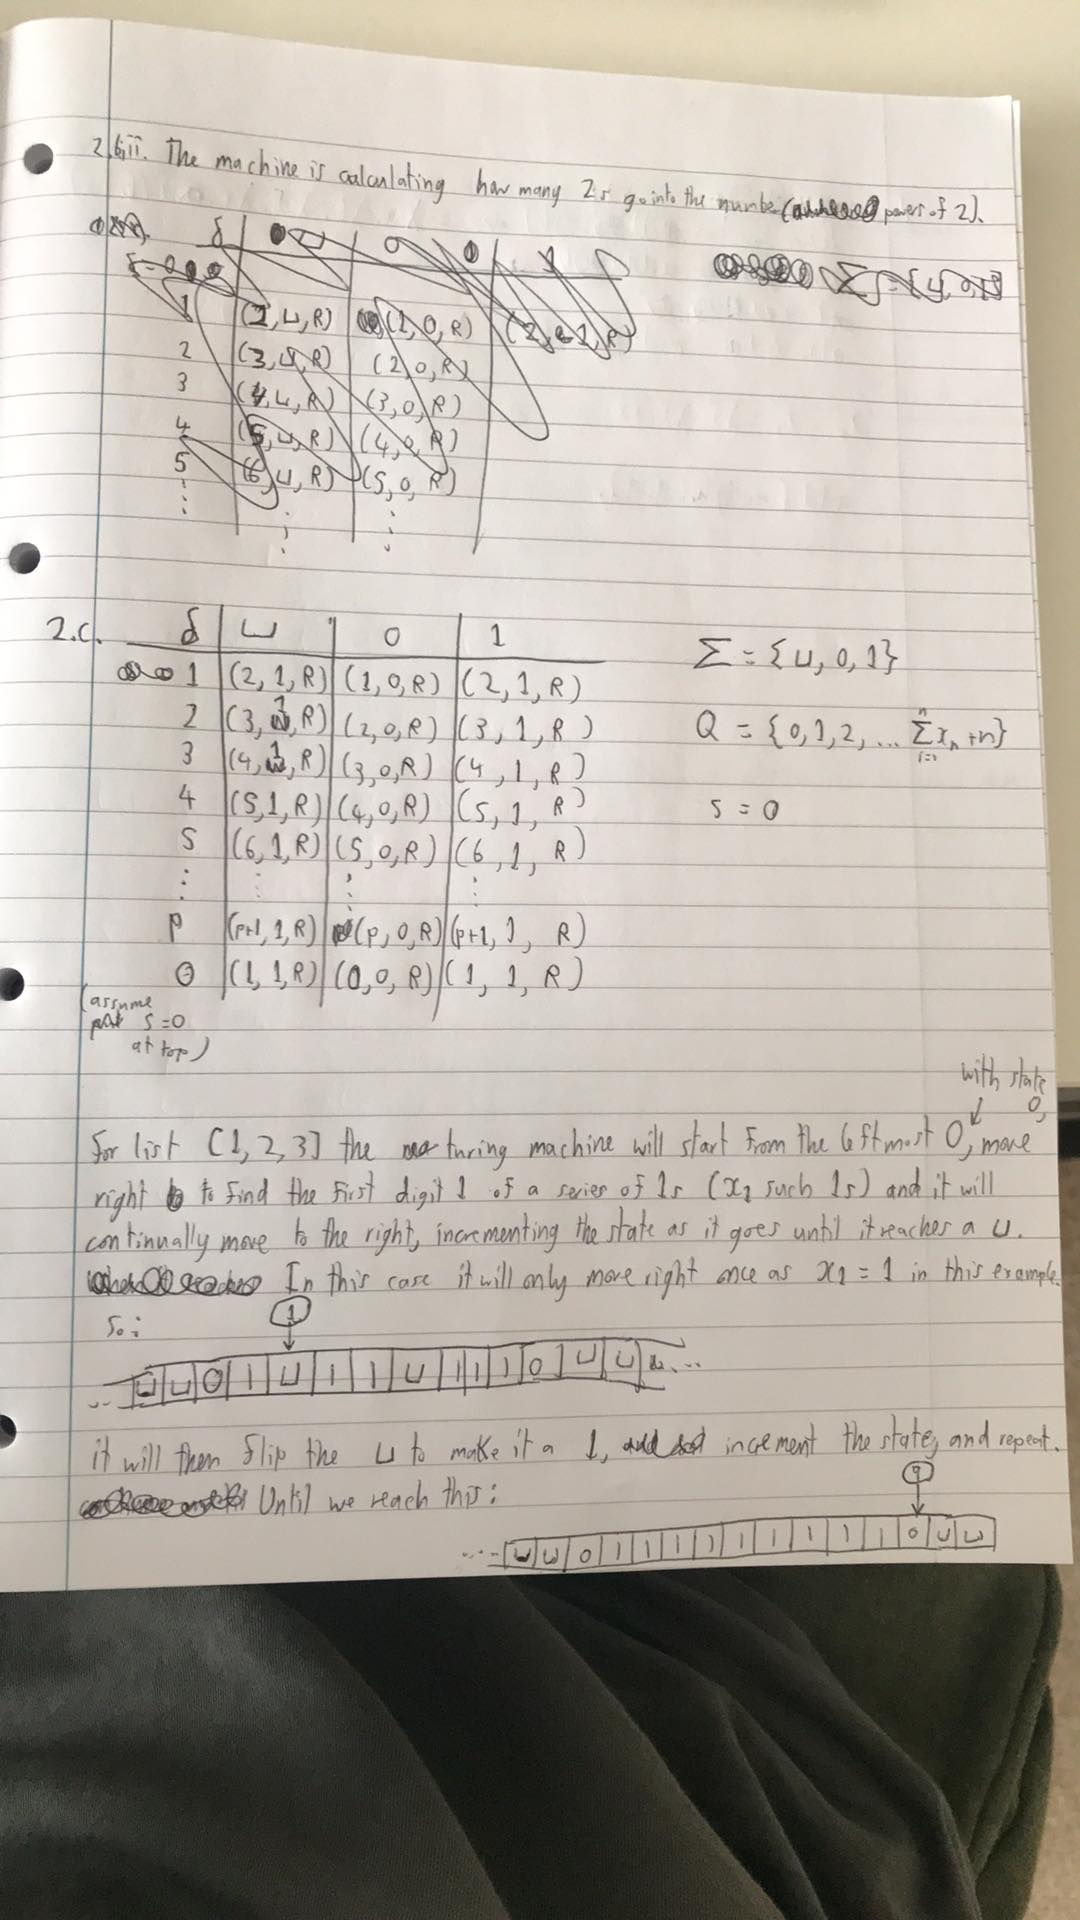 2.b.ii. The machine is calculating how many 2s go into the number ( powers of 2).
δ
1 (2, ⊔, R) (1, 0, R) (2, 1, R)
2 (3, ⊔, R) (2, 0, R)
3 (4, ⊔, R) (3, 0, R)
4 (5, ⊔, R) (4, 0, R)
5 (6, ⊔, R) (5, 0, R)
⋮ ⋮ ⋮
2.c. δ ⊔ 0 1
1 (2, 1, R) (1, 0, R) (2, 1, R)
2 (3, 1, R) (2, 0, R) (3, 1, R)
3 (4, 1, R) (3, 0, R) (4, 1, R)
4 (5, 1, R) (4, 0, R) (5, 1, R)
5 (6, 1, R) (5, 0, R) (6, 1, R)
⋮ ⋮ ⋮ ⋮
p (p+1, 1, R) (p, 0, R) (p+1, 1, R)
0 (1, 1, R) (0, 0, R) (1, 1, R)
(assume
s=0
at top)
Σ = {⊔, 0, 1}
Q = {0, 1, 2, ... Σ xₙ + n}
s = 0
with state
0,
For list [1, 2, 3] the turing machine will start from the leftmost 0, move
right to find the first digit 1 of a series of 1s (x₁ such 1s) and it will
continually move to the right, incrementing the state as it goes until it reaches a ⊔.
In this case it will only move right once as x₁ = 1 in this example.
So:
1
... ⊔ ⊔ 0 1 ⊔ 1 1 ⊔ 1 1 1 0 ⊔ ⊔ ...
it will then flip the ⊔ to make it a 1, increment the state, and repeat.
Until we reach this:
9
... ⊔ ⊔ 0 1 1 1 1 1 1 1 1 1 0 ⊔ ⊔